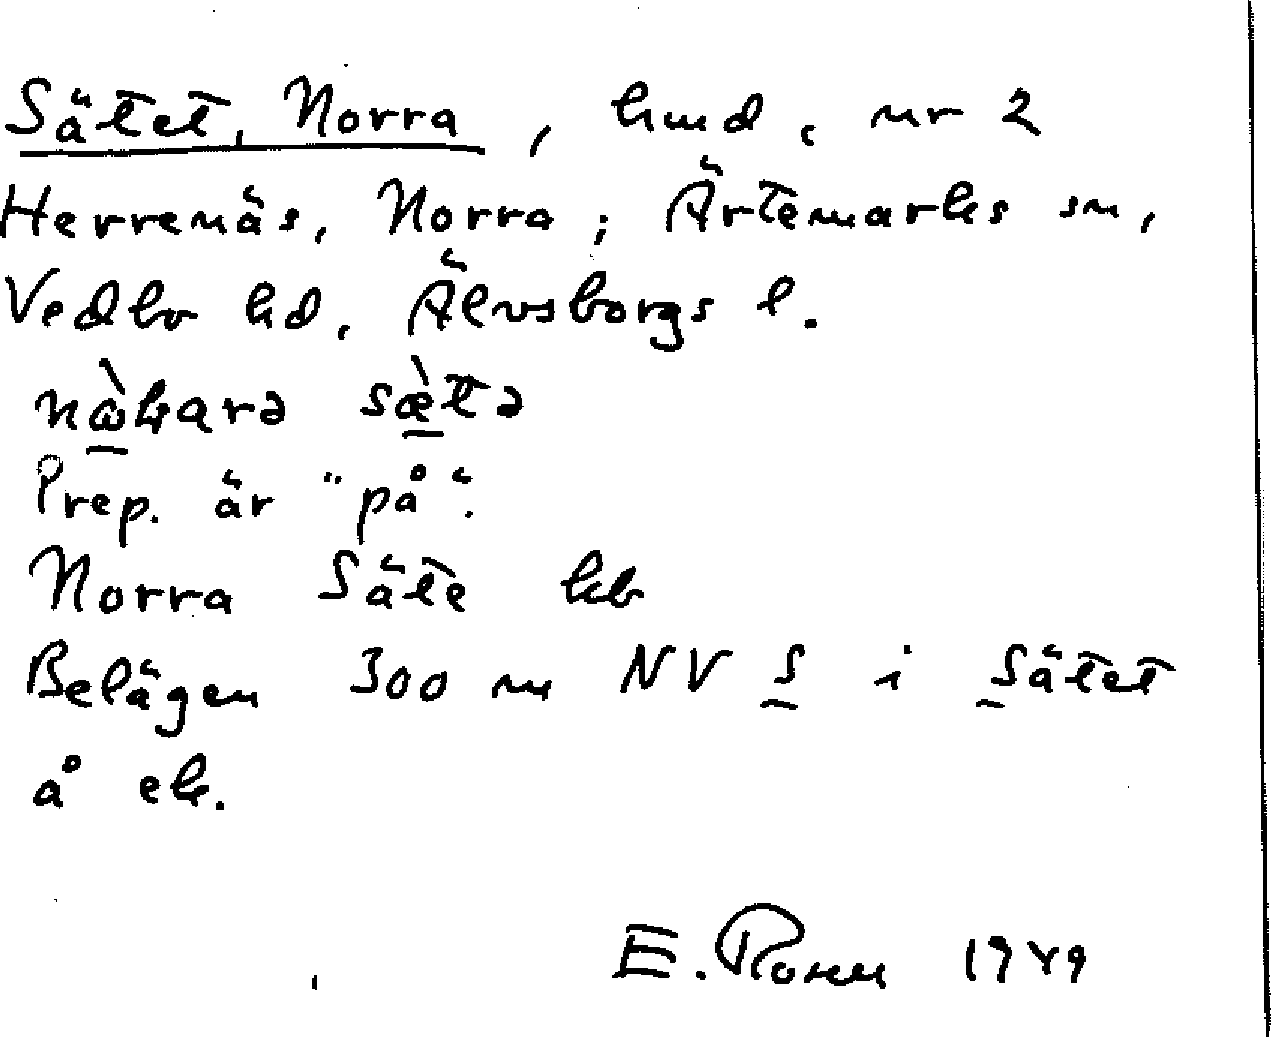 Sätet, Norra, hmd. nr 2
Herrenäs, Norra; Ärtemarks sn,
Vedbo hd, Älvsborgs l.
sæ̀tə
Prep. är "på".
Norra Säte kb
Belägen 300 m NV S i Sätet
å ek.
E. Rosell 1949